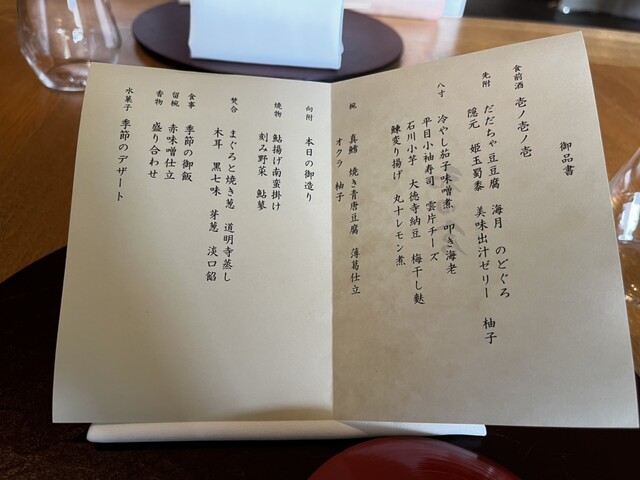 御品書
食前酒 壱ノ壱ノ壱
先附 だだちゃ豆豆腐 海月 のどぐろ
隠元 姫玉蜀黍 美味出汁ゼリー 柚子
八寸 冷やし茄子味噌煮 叩き海老
平目小袖寿司 雲片チーズ
石川小芋 大徳寺納豆 梅干し麩
鰊変り揚げ 丸十レモン煮
椀 真鱈 焼き青唐豆腐 薄葛仕立
オクラ 柚子
向附 本日の御造り
焼物 鮎揚げ南蛮掛け
刻み野菜 鮎蓼
焚合 まぐろと焼き葱 道明寺蒸し
木耳 黒七味 芽葱 淡口餡
食事 季節の御飯
留椀 赤味噌仕立
香物 盛り合わせ
水菓子 季節のデザート